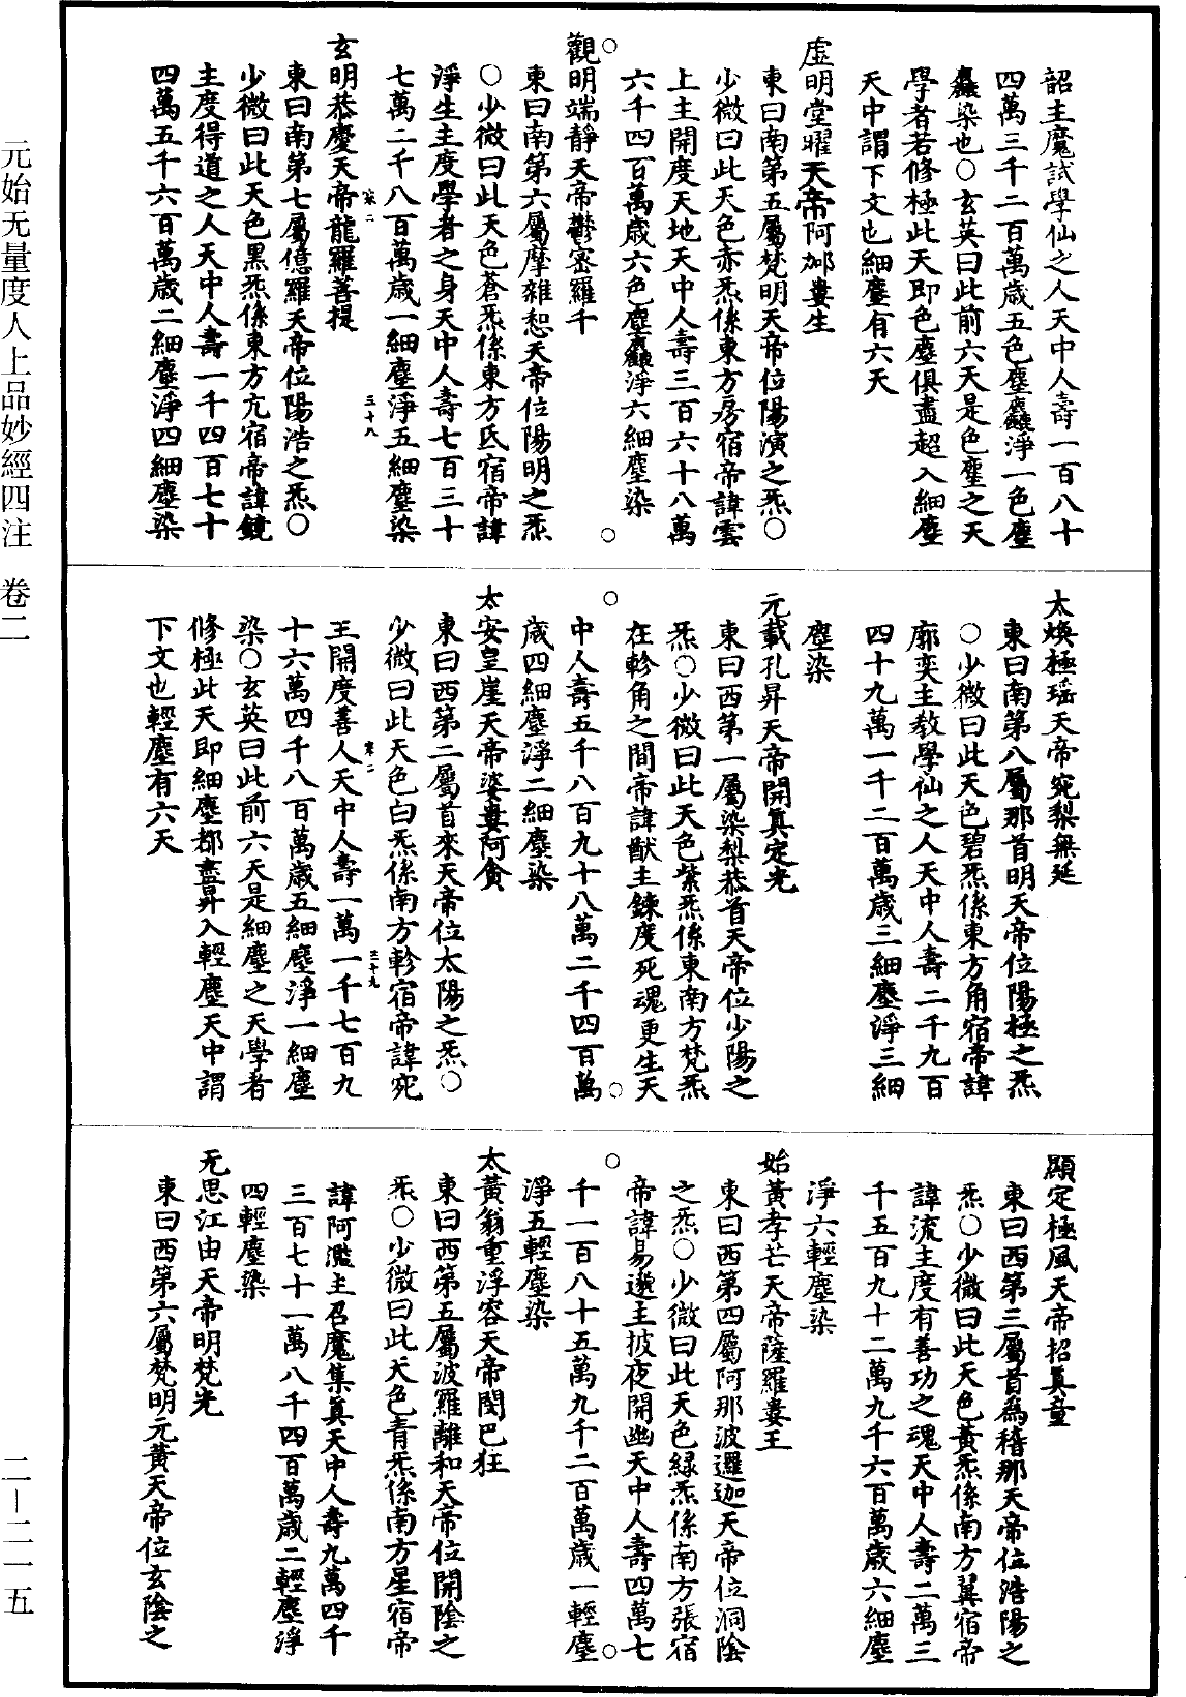 韶主魔試學仙之人天中人壽一百八十
四萬三千二百萬歲五色塵麤淨一色塵
麤染也○玄英曰此前六天是色塵之天
學者若修極此天即色塵俱盡超入細塵
天中謂下文也細塵有六天
虛明堂曜天帝阿𨚗婁生
東曰南第五屬梵明天帝位陽演之炁○
少微曰此天色赤炁係東方房宿帝諱雲
上主開度天地天中人壽三百六十八萬
六千四百萬歲六色塵麤淨六細塵染
觀明端靜天帝鬱密羅千
東曰南第六屬摩雜恕天帝位陽明之炁
○少微曰此天色蒼炁係東方氐宿帝諱
淨生主度學者之身天中人壽七百三十
七萬二千八百萬歲一細塵淨五細塵染
玄明恭慶天帝龍羅菩提
東曰南第七屬億羅天帝位陽浩之炁○
少微曰此天色黑炁係東方亢宿帝諱鏡
主度得道之人天中人壽一千四百七十
四萬五千六百萬歲二細塵淨四細塵染
太煥極瑶天帝宛黎無延
東曰南第八屬那首明天帝位陽極之炁
○少微曰此天色碧炁係東方角宿帝諱
廓奕主教學仙之人天中人壽二千九百
四十九萬一千二百萬歲三細塵淨三細
塵染
元載孔昇天帝開真定光
東曰西第一屬染梨恭首天帝位少陽之
炁○少微曰此天色紫炁係東南方梵炁
在軫角之間帝諱猷主鍊度死魂更生天
中人壽五千八百九十八萬二千四百萬
歲四細塵淨二細塵染
太安皇崖天帝婆婁阿貪
東曰西第二屬首來天帝位太陽之炁○
少微曰此天色白炁係南方軫宿帝諱宛
王開度善人天中人壽一萬一千七百九
十六萬四千八百萬歲五細塵淨一細塵
染○玄英曰此前六天是細塵之天學者
修極此天即細塵都盡昇入輕塵天中謂
下文也輕塵有六天
顯定極風天帝招真童
東曰西第三屬首為稽那天帝位浩陽之
炁○少微曰此天色黃炁係南方翼宿帝
諱流主度有善功之魂天中人壽二萬三
千五百九十二萬九千六百萬歲六細塵
淨六輕塵染
始黃孝芒天帝薩羅婁王
東曰西第四屬阿那波邏迦天帝位洞陰
之炁○少微曰此天色綠炁係南方張宿
帝諱易邈主披夜開幽天中人壽四萬七
千一百八十五萬九千二百萬歲一輕塵
淨五輕塵染
太黃翁重浮容天帝閔巴狂
東曰西第五屬波羅離和天帝位開陰之
炁○少微曰此天色青炁係南方星宿帝
諱阿濫主召魔集真天中人壽九萬四千
三百七十一萬八千四百萬歲二輕塵淨
四輕塵染
无思江由天帝明梵光
東曰西第六屬梵明元黃天帝位玄陰之
元始无量度人上品妙經四注 卷二
二—二一五